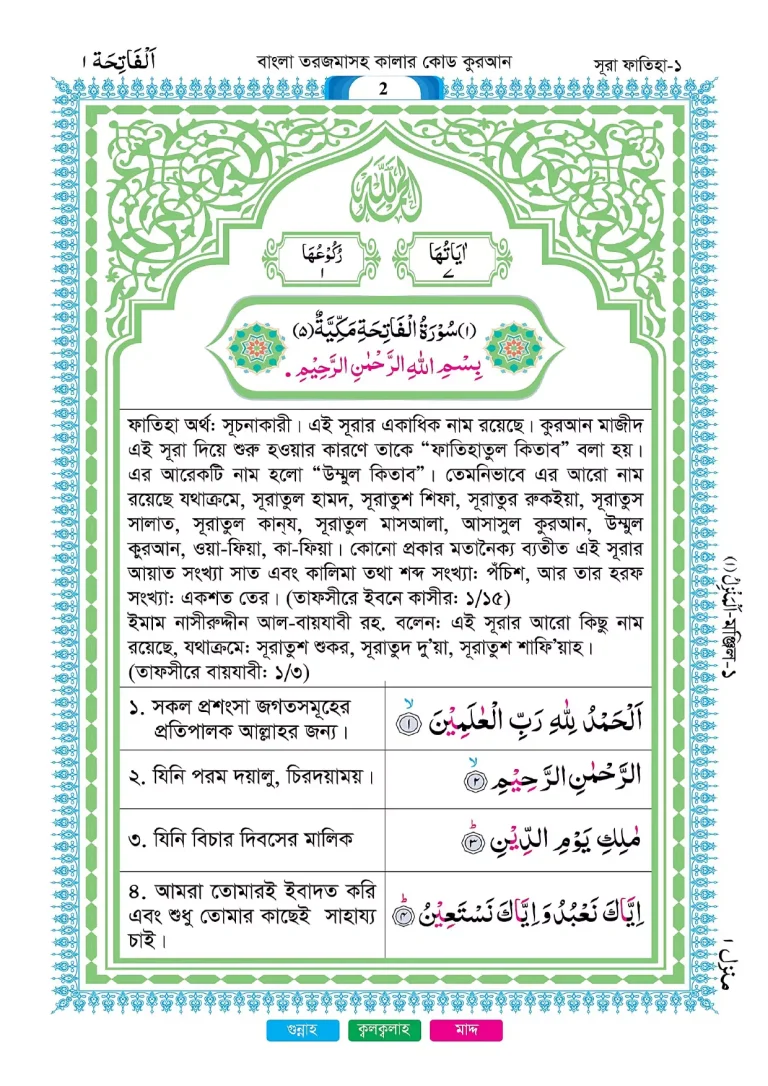 اَلْفَاتِحَة ١
বাংলা তরজমাসহ কালার কোড কুরআন
সূরা ফাতিহা-১
2
الحمد لله
اٰيَاتُهَا
٧
رُكُوْعُهَا
١
(١) سُوْرَةُ الْفَاتِحَةِ مَكِّيَّةٌ (٥)
بِسْمِ اللهِ الرَّحْمٰنِ الرَّحِيْمِ
ফাতিহা অর্থ: সূচনাকারী। এই সূরার একাধিক নাম রয়েছে। কুরআন মাজীদ
এই সূরা দিয়ে শুরু হওয়ার কারণে তাকে “ফাতিহাতুল কিতাব” বলা হয়।
এর আরেকটি নাম হলো “উম্মুল কিতাব”। তেমনিভাবে এর আরো নাম
রয়েছে যথাক্রমে, সূরাতুল হামদ, সূরাতুশ শিফা, সূরাতুর রুকইয়া, সূরাতুস
সালাত, সূরাতুল কান্‌য, সূরাতুল মাসআলা, আসাসুল কুরআন, উম্মুল
কুরআন, ওয়া-ফিয়া, কা-ফিয়া। কোনো প্রকার মতানৈক্য ব্যতীত এই সূরার
আয়াত সংখ্যা সাত এবং কালিমা তথা শব্দ সংখ্যা: পঁচিশ, আর তার হরফ
সংখ্যা: একশত তের। (তাফসীরে ইবনে কাসীর: ১/১৫)
ইমাম নাসীরুদ্দীন আল-বায়যাবী রহ. বলেন: এই সূরার আরো কিছু নাম
রয়েছে, যথাক্রমে: সূরাতুশ শুকর, সূরাতুদ দু'য়া, সূরাতুশ শাফি'য়াহ।
(তাফসীরে বায়যাবী: ১/৩)
১. সকল প্রশংসা জগতসমূহের
প্রতিপালক আল্লাহর জন্য।
اَلْحَمْدُ لِلّٰهِ رَبِّ الْعٰلَمِيْنَ ۙ‏ ﴿١﴾
২. যিনি পরম দয়ালু, চিরদয়াময়।
الرَّحْمٰنِ الرَّحِيْمِ ۙ‏ ﴿٢﴾
৩. যিনি বিচার দিবসের মালিক
مٰلِكِ يَوْمِ الدِّيْنِ ؕ‏ ﴿٣﴾
৪. আমরা তোমারই ইবাদত করি
এবং শুধু তোমার কাছেই সাহায্য
চাই।
اِيَّاكَ نَعْبُدُ وَ اِيَّاكَ نَسْتَعِيْنُ ؕ‏ ﴿٤﴾
اَلْمَنْزِلُ (١)-মঞ্জিল-১
منزل ١
গুন্নাহ
ক্বলক্বলাহ
মাদ্দ